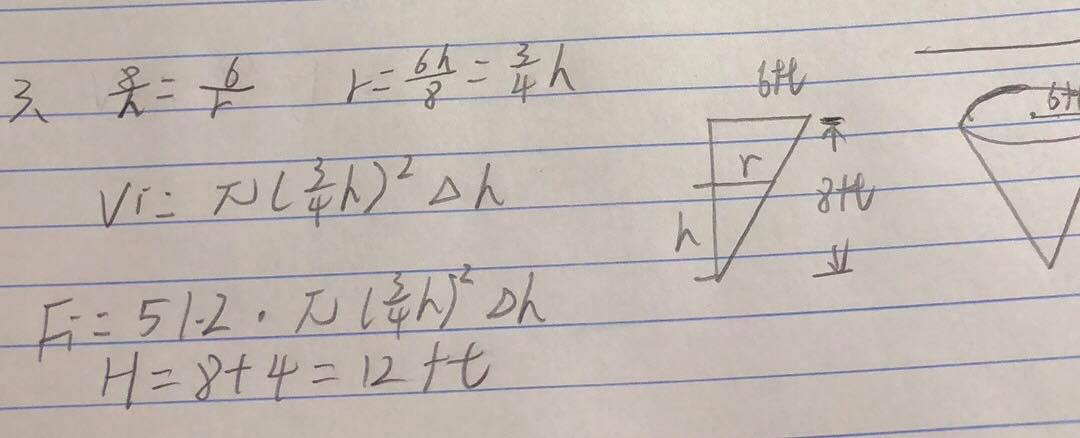 3、 8/h = 6/r r = 6h/8 = 3/4 h
Vi = π(3/4 h)² Δh
Fi = 51.2 · π(3/4 h)² Δh
H = 8+4 = 12 ft
6ft
r
8ft
h
6ft